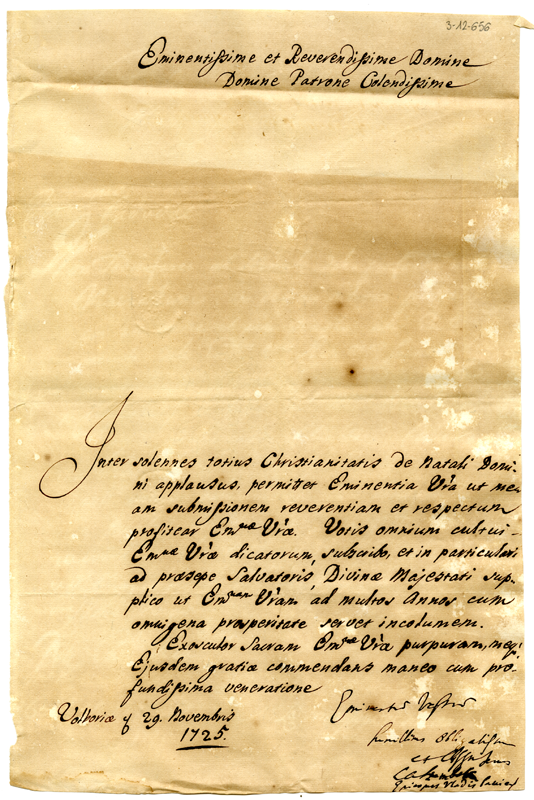 3-12-656
Eminentissime et Reverendissime Domine
Domine Patrone Colendissime
Inter solennes totius Christianitatis de Natali Domi-
ni applausus, permittet Eminentia Vra ut me-
am submissionem reverentiam et respectum
profitear Emnae Vrae. Votis omnium cultui
Emnae Vrae dicatorum, subscribo, et in particulari
ad praesepe Salvatoris, Divinae Majestati sup-
plico ut Emnam Vram, ad multos Annos cum
omnigena prosperitate servet incolumem.
Exosculor Sacram Emnae Vrae purpuram, meq;
Ejusdem gratiae commendans maneo cum pro-
fundissima veneratione
Eminentiae Vestrae
Volboriae 29. Novembris
1725
humillimus
et
Episcopus